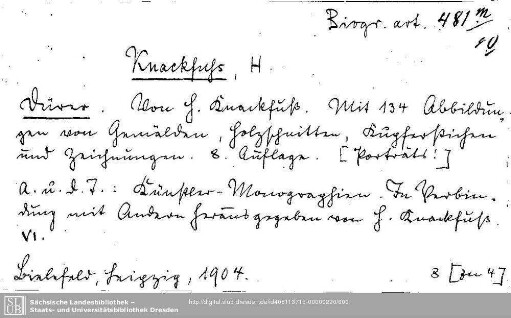 Biogr. art. 481 m
10
Knackfuss, H.
Dürer. Von H. Knackfuß. Mit 134 Abbildun-
gen von Gemälden, Holzschnitten, Kupferstichen
und Zeichnungen. 8. Auflage. [Porträts!]
A. u. d. T.: Künstler-Monographien. In Verbin-
dung mit Andern herausgegeben von H. Knackfuß.
VI.
Bielefeld, Leipzig, 1904. 8 [zu 4]
SLUB Sächsische Landesbibliothek –
Staats- und Universitätsbibliothek Dresden